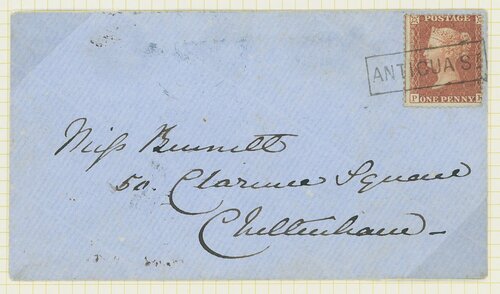 POSTAGE
ANTIGUA S
P ONE PENNY K
Miss Bennett
50. Clarence Square
Cheltenham -